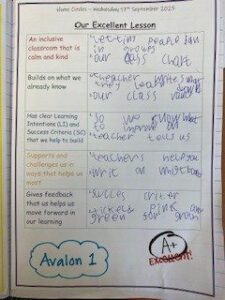 Home Circles - Wednesday 17th September 2025
Our Excellent Lesson
An inclusive
classroom that is
calm and kind
letting people join
in groups
our class chart
Builds on what we
already know
teacher
they
our class
Has clear Learning
Intentions (LI) and
Success Criteria (SC)
that we help to build
so we know what
to improve on
teacher tells us
Supports and
challenges us in
ways that helps us
most
teachers help you
writ on whitboard
Gives feedback
that us helps us
move forward in
our learning
succes criter
pink and
green for green
Avalon 1
A+
EXCELLENT!